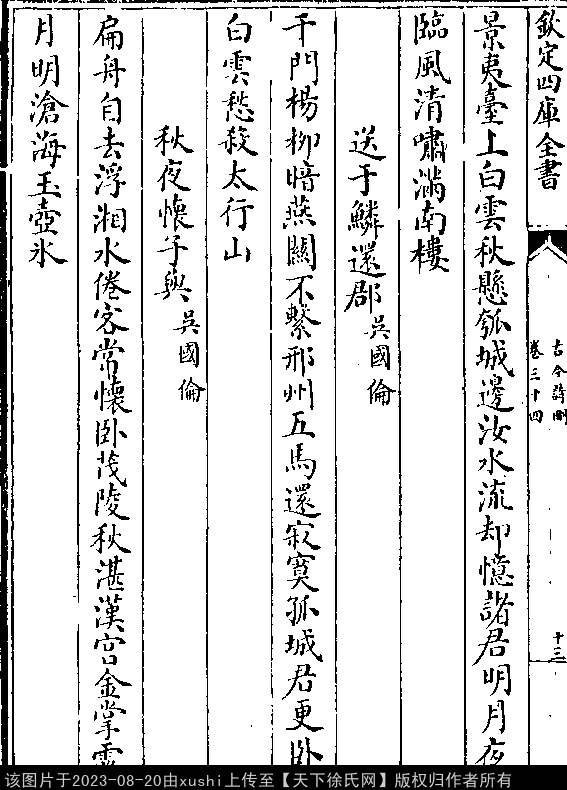 欽定四庫全書
古今詩刪
卷三十四
十三
景夷臺上白雲秋懸瓠城邊汝水流却憶諸君明月夜
臨風清嘯滿南樓
送于鱗還郡 吳國倫
千門楊柳暗燕關不繫邢州五馬還寂寞孤城君更卧
白雲愁殺太行山
秋夜懷子與 吳國倫
扁舟自去浮湘水倦客常懷卧茂陵秋湛漢宮金掌露
月明滄海玉壺氷
该图片于2023-08-20由xushi上传至【天下徐氏网】版权归作者所有